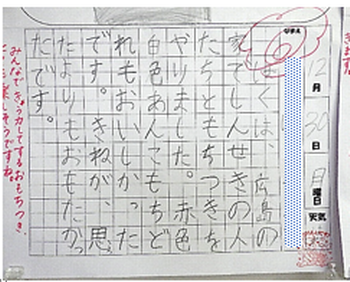 12月30日月曜日天気
ぼくは、広島の
家でしんせきの人
たちともちつきを
やりました。赤色
白色あんこもちど
れもおいしかった
です。きねが、思っ
たよりもおもたかっ
たです。
みんなできょう力してするおもちつき、
楽しそうですね。